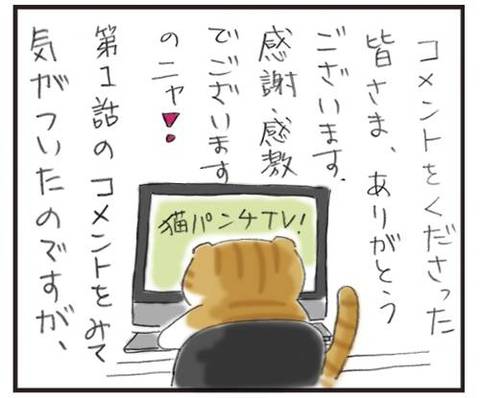 コメントをくださった
皆さま、ありがとう
ございます。
感謝・感激
でございます
のニャ♥
第1話のコメントをみて
気がついたのですが、
猫パンチTV!